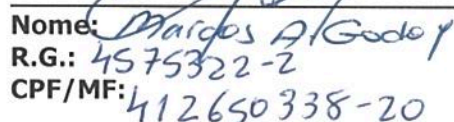 Nome: Marcos A. Godoy
R.G.: 4575322-2
CPF/MF: 412650338-20